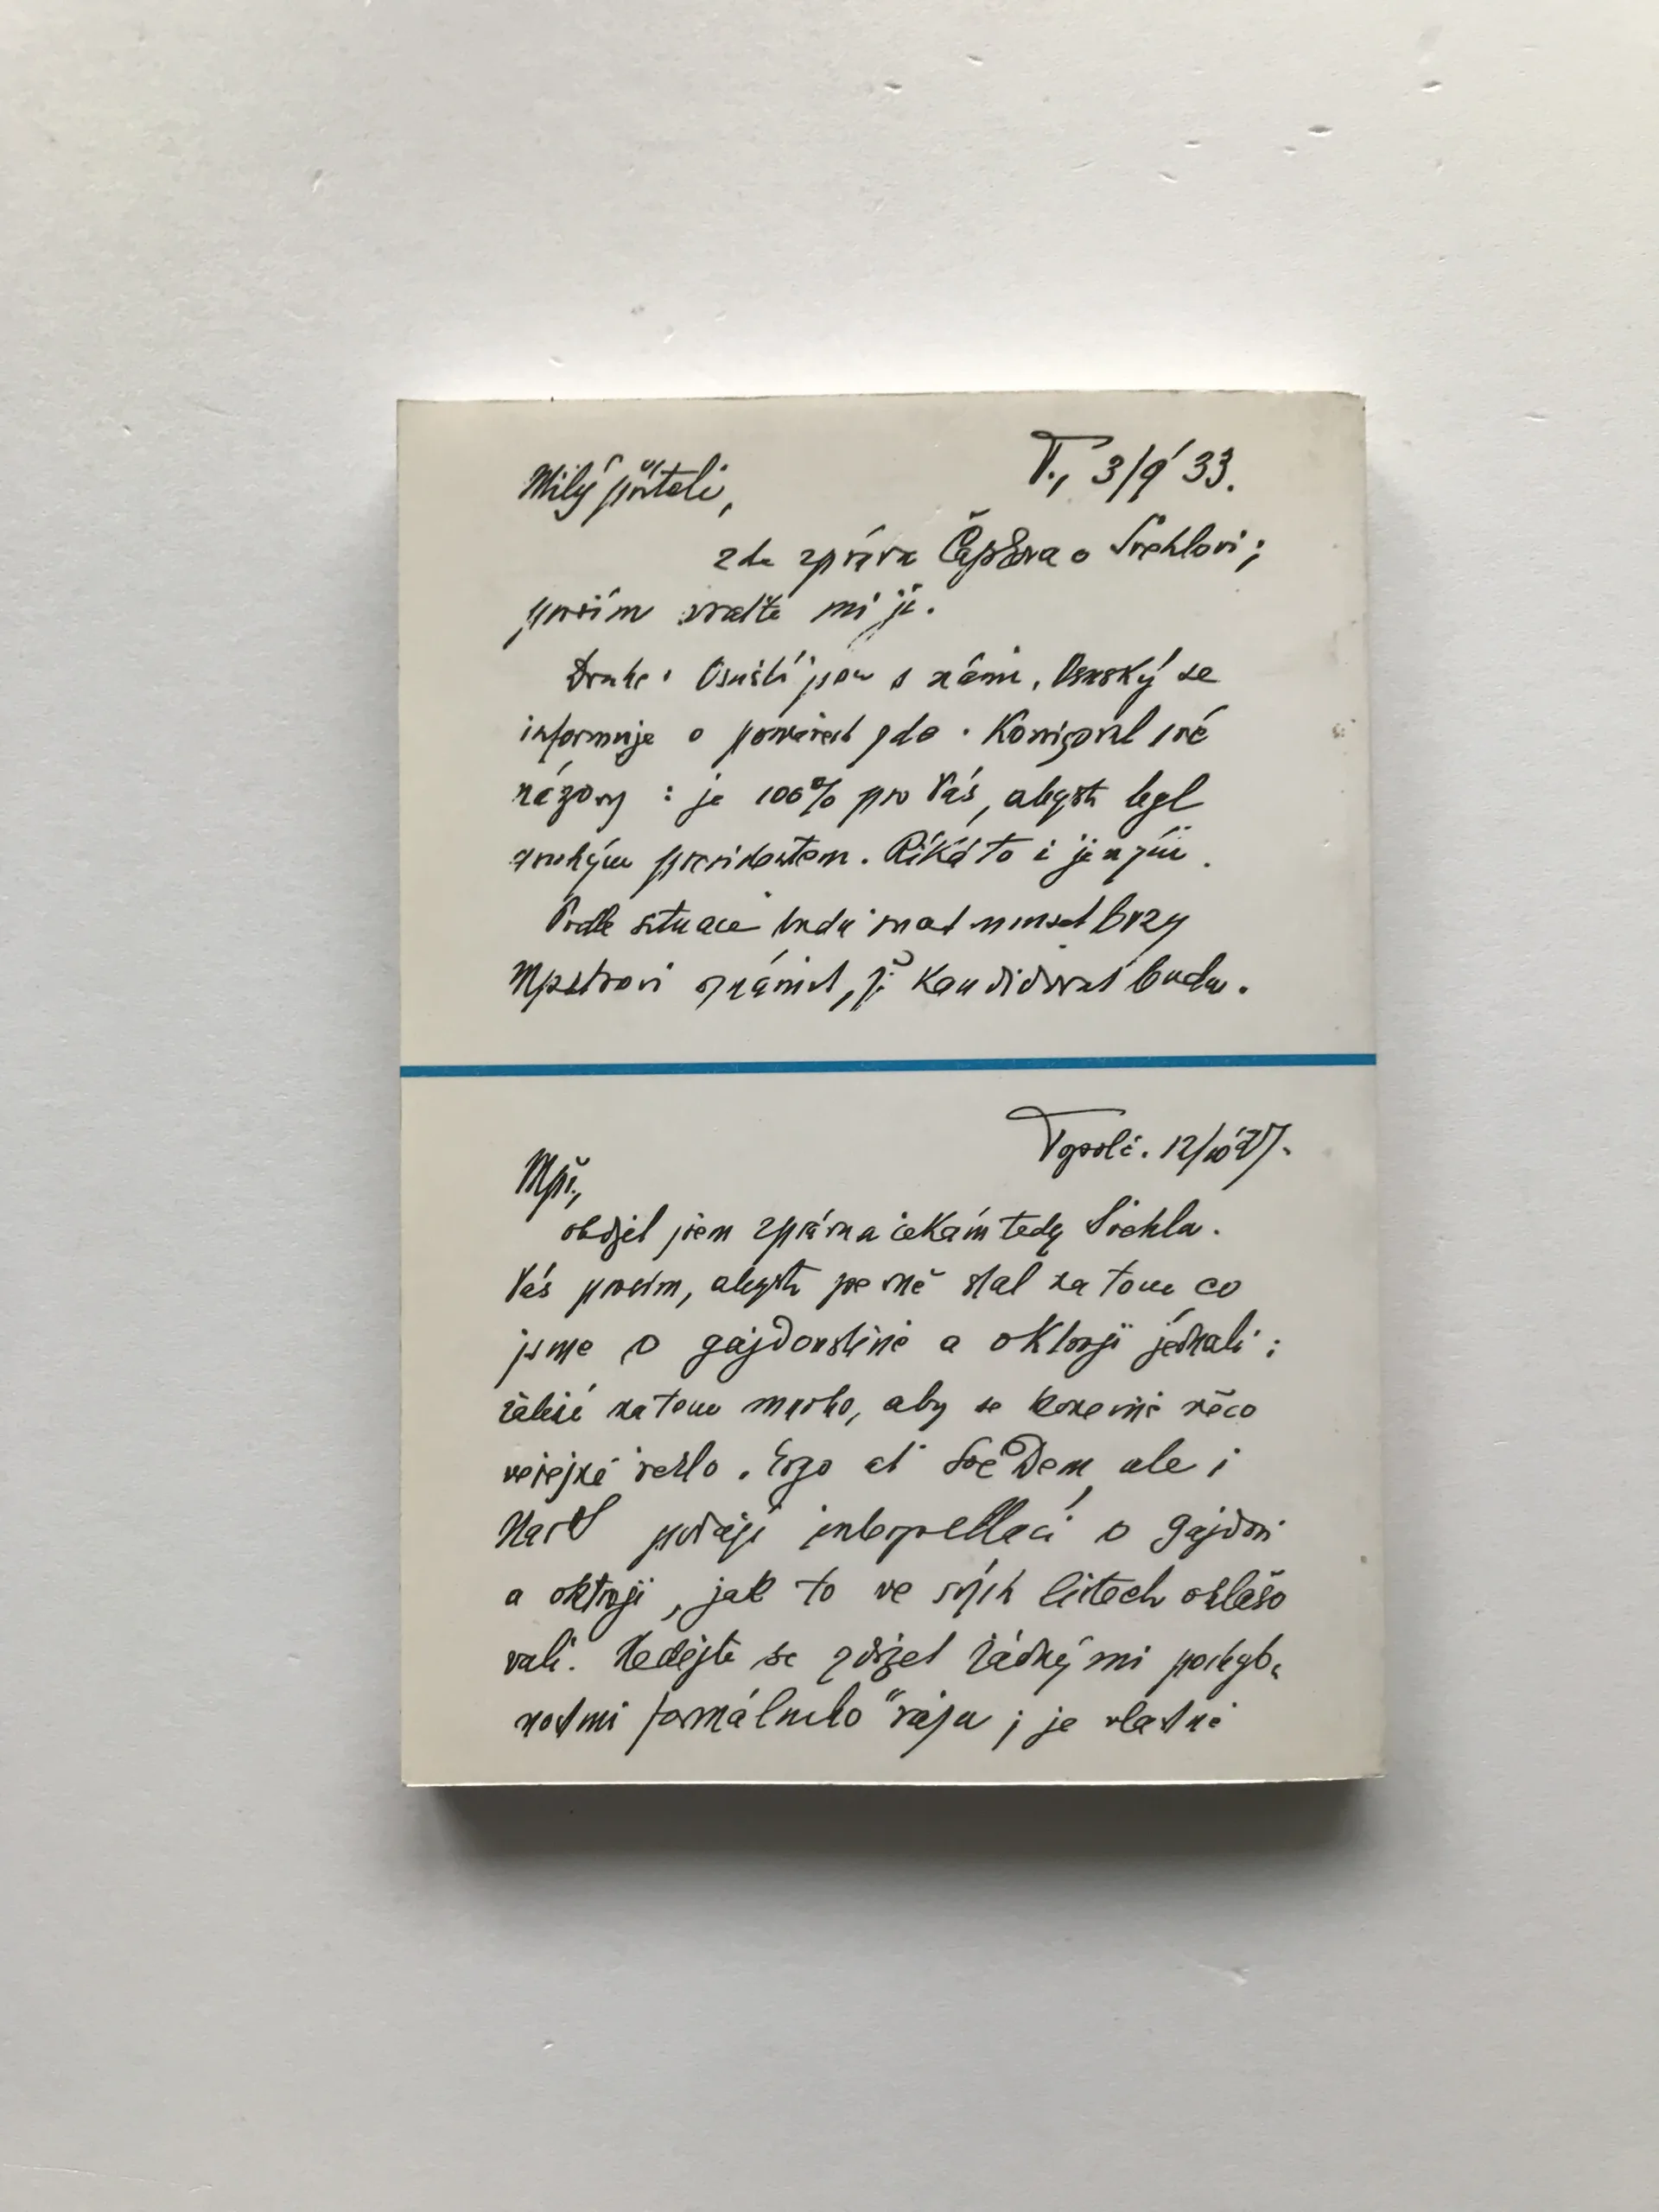 Milý příteli,
T., 3/9 33.
zde zpráva Čapkova o Švehlovi;
prosím vraťte mi ji.
Druhé: Osuští jsou s námi, Osuský se
informuje o poměrech zde. Korrigoval své
názory: je 100% pro Vás, abyste byl
druhým presidentem. Říká to i jiným.
Podle situace budu snad muset brzy
oznámit, že kandidovat budu.
Topolč. 12/10 27.
Mpř.,
obdržel jsem zprávu a čekám tedy Švehlu.
Vás prosím, abyste pevně stál na tom co
jsme o gajdovštině a oktroji jednali;
záleží na tom mnoho, aby se konečně něco
veřejně řeklo. Ergo ať SocDem, ale i
NarS podají interpellaci o Gajdovi
a oktroji, jak to ve svých listech ohlašo
vali. Nedejte se zdržet žádnými pochyb-
nostmi formálního rázu; je vlastně